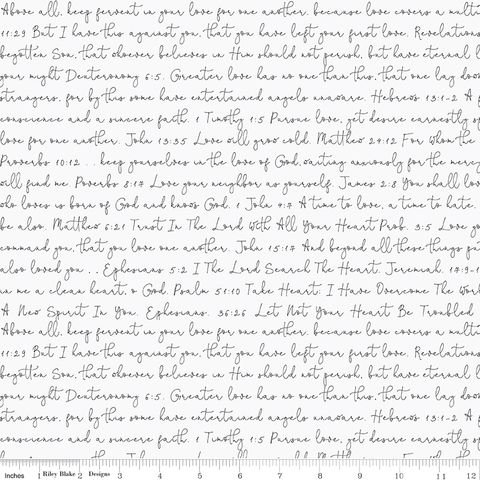 Above all, keep fervent in your love for one another, because love covers a mult
11:29 But I have this against you, that you have left your first love. Revelations
begotten Son, that whoever believes in Him should not perish, but have eternal l
your might Deuteronomy 6:5. Greater love has no one than this, that one lay dow
strangers, for by this some have entertained angels unaware. Hebrews 13:1-2 A p
conscience and a sincere faith. 1 Timothy 1:5 Pursue love, yet desire earnestly
love for one another. John 13:35 Love will grow cold. Matthew 24:12 For whom the
Proverbs 10:12 . . keep yourselves in the love of God, waiting anxiously for the mercy
will find me. Poverbs 8:17 Love your neighbor as yourself. James 2:8 You shall lov
who loves is born of God and knows God. 1 John 4:7 A time to love, a time to hate.
be also. Matthew 6:21 Trust In The Lord With All Your Heart Prob. 3:5 Love yo
command you, that you love one another. John 15:17 And beyond all these things pu
also loved you . . Ephesians 5:2 I The Lord Search The Heart. Jeremiah. 17:9-1
in me a clean heart, o God. Psalm 51:10 Take Heart; I Have Overcome The Worl
A New Spirit In You. Ephesians. 36:26 Let Not Your Heart Be Troubled
Above all, keep fervent in your love for one another, because love covers a mult
11:29 But I have this against you, that you have left your first love. Revelations
begotten Son, that whoever believes in Him should not perish, but have eternal l
your might Deuteronomy 6:5. Greater love has no one than this, that one lay dow
strangers, for by this some have entertained angels unaware. Hebrews 13:1-2 A p
conscience and a sincere faith. 1 Timothy 1:5 Pursue love, yet desire earnestly
Inches 1 Riley Blake 2 Designs 3 4 5 6 7 8 9 10 11 12